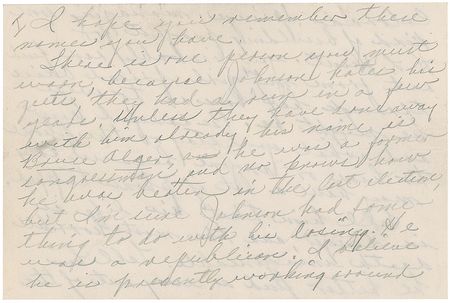 I hope you remember these
names you have.
There is one person you must
warn, because Johnson hates his
guts, they had a run in a few
years. Unless they have done away
with him already, his name is
Bruce Alger, he was a former
congressman, and no knows how
he was beaten in the last election,
but I'm sure Johnson had some-
thing to do with his losing. He
was a republican. I believe
he is presently working around